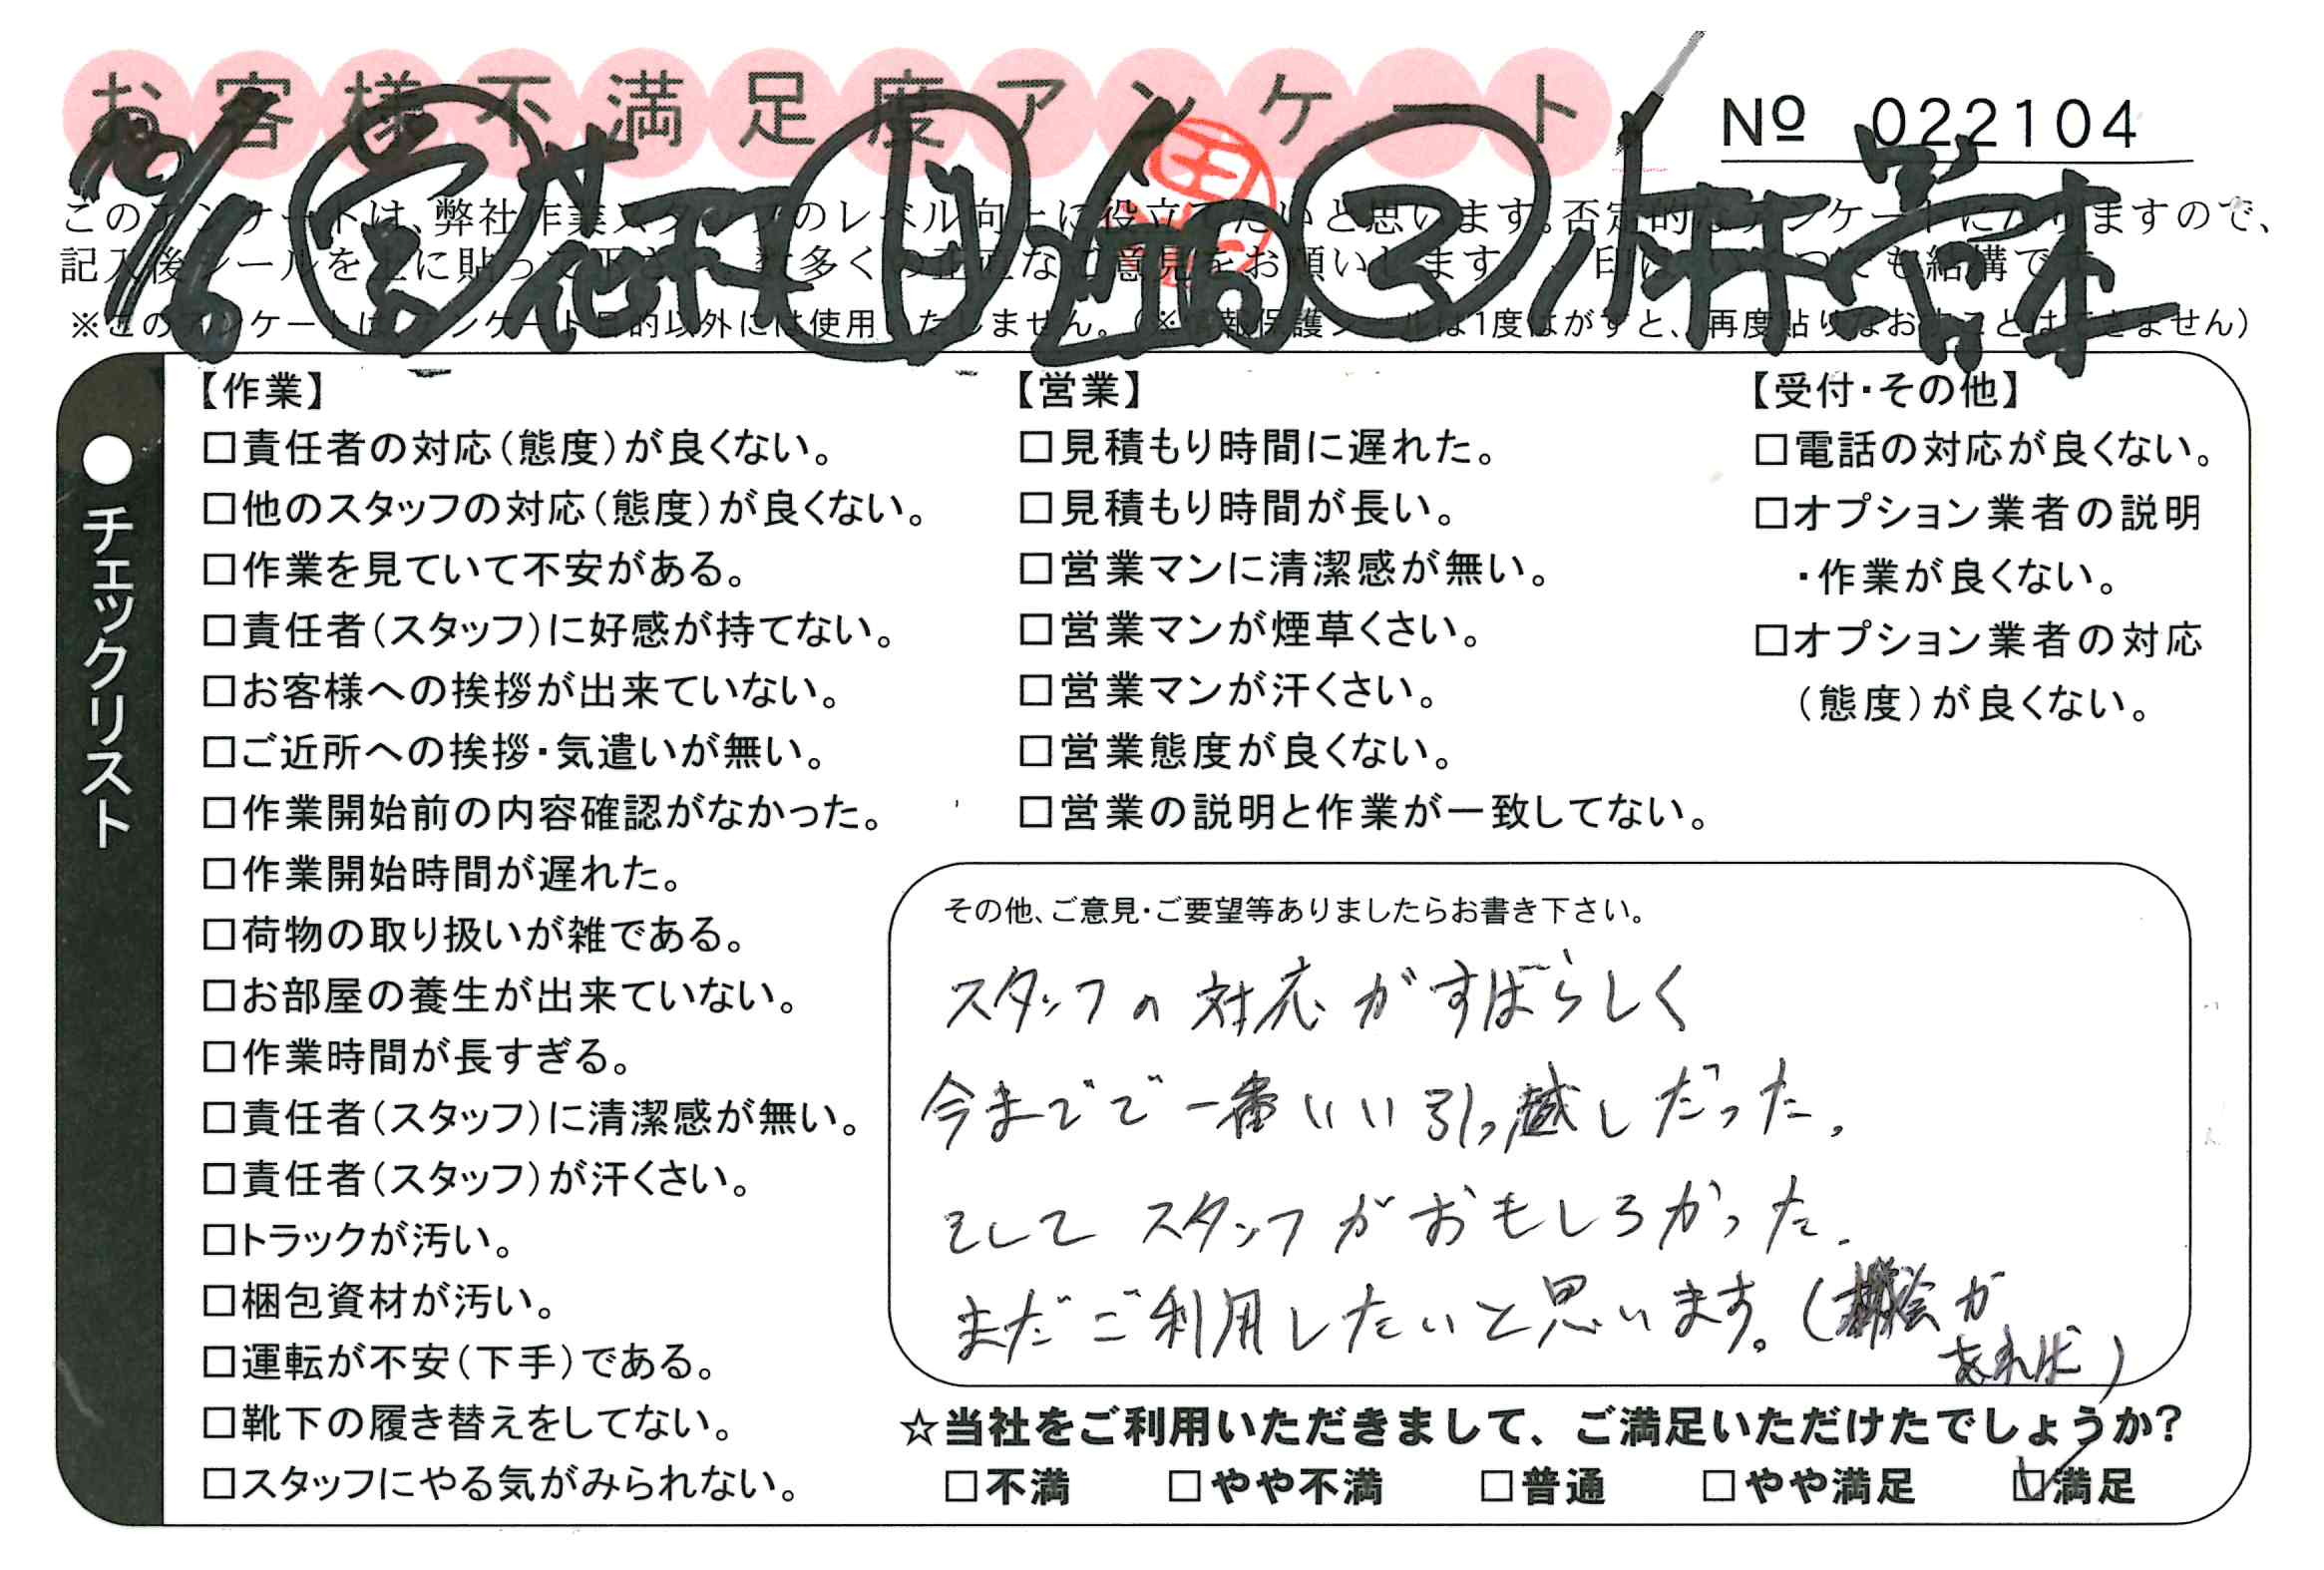 お客様不満足度アンケート
№ 022104
このアンケートは、弊社作業スタッフのレベル向上に役立てたいと思います。否定的なアンケートになりますので、
記入後シールを上に貼って下さい。数多くの正直なご意見をお願いします。
※このアンケートはアンケート目的以外には使用いたしません。（※情報保護シールは1度はがすと、再度貼りなおすことはできません）
●チェックリスト
【作業】
□責任者の対応（態度）が良くない。
□他のスタッフの対応（態度）が良くない。
□作業を見ていて不安がある。
□責任者（スタッフ）に好感が持てない。
□お客様への挨拶が出来ていない。
□ご近所への挨拶・気遣いが無い。
□作業開始前の内容確認がなかった。
□作業開始時間が遅れた。
□荷物の取り扱いが雑である。
□お部屋の養生が出来ていない。
□作業時間が長すぎる。
□責任者（スタッフ）に清潔感が無い。
□責任者（スタッフ）が汗くさい。
□トラックが汚い。
□梱包資材が汚い。
□運転が不安（下手）である。
□靴下の履き替えをしてない。
□スタッフにやる気がみられない。
【営業】
□見積もり時間に遅れた。
□見積もり時間が長い。
□営業マンに清潔感が無い。
□営業マンが煙草くさい。
□営業マンが汗くさい。
□営業態度が良くない。
□営業の説明と作業が一致してない。
【受付・その他】
□電話の対応が良くない。
□オプション業者の説明
・作業が良くない。
□オプション業者の対応
（態度）が良くない。
その他、ご意見・ご要望等ありましたらお書き下さい。
スタッフの対応がすばらしく
今までで一番いい引っ越しだった。
そしてスタッフがおもしろかった。
まだご利用したいと思います。（機会が
あれば）
☆当社をご利用いただきまして、ご満足いただけたでしょうか？
□不満 □やや不満 □普通 □やや満足 ☑満足